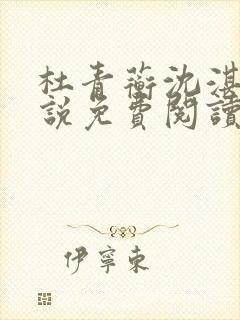 杜青蘅沈湛
說免費閱讀
伊寧東